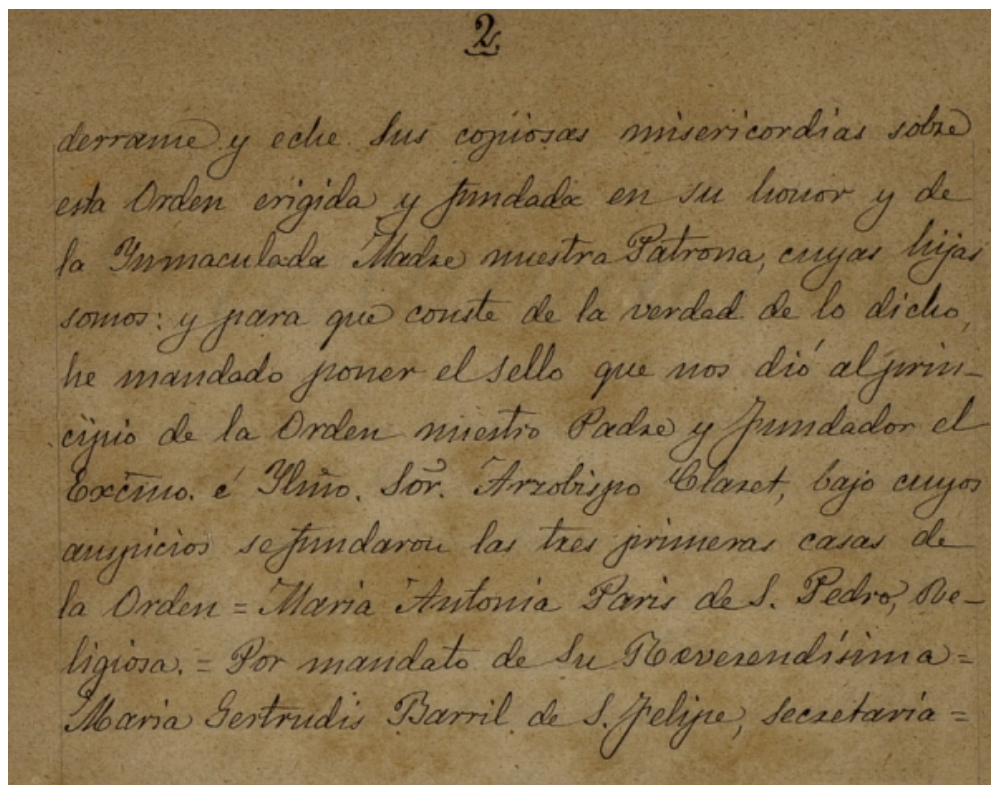 2.
derrame y eche sus copiosas misericordias sobre
esta Orden erigida y fundada en su honor y de
la Ynmaculada Madre nuestra Patrona, cuyas hijas
somos: y para que conste de la verdad de lo dicho,
he mandado poner el sello que nos dió al prin-
cipio de la Orden nuestro Padre y Fundador el
Excmo. é Ylmo. Sor. Arzobispo Claret, bajo cuyos
auspicios se fundaron las tres primeras casas de
la Orden = Maria Antonia Paris de S. Pedro, Re-
ligiosa. = Por mandato de Su Reverendísima =
Maria Gertrudis Barril de S. Felipe, secretaria =